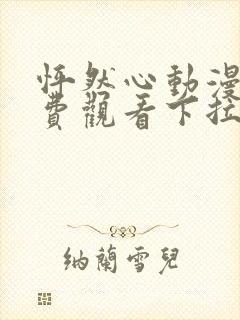 怦然心動漫
費觀看下拉
納蘭雪兒